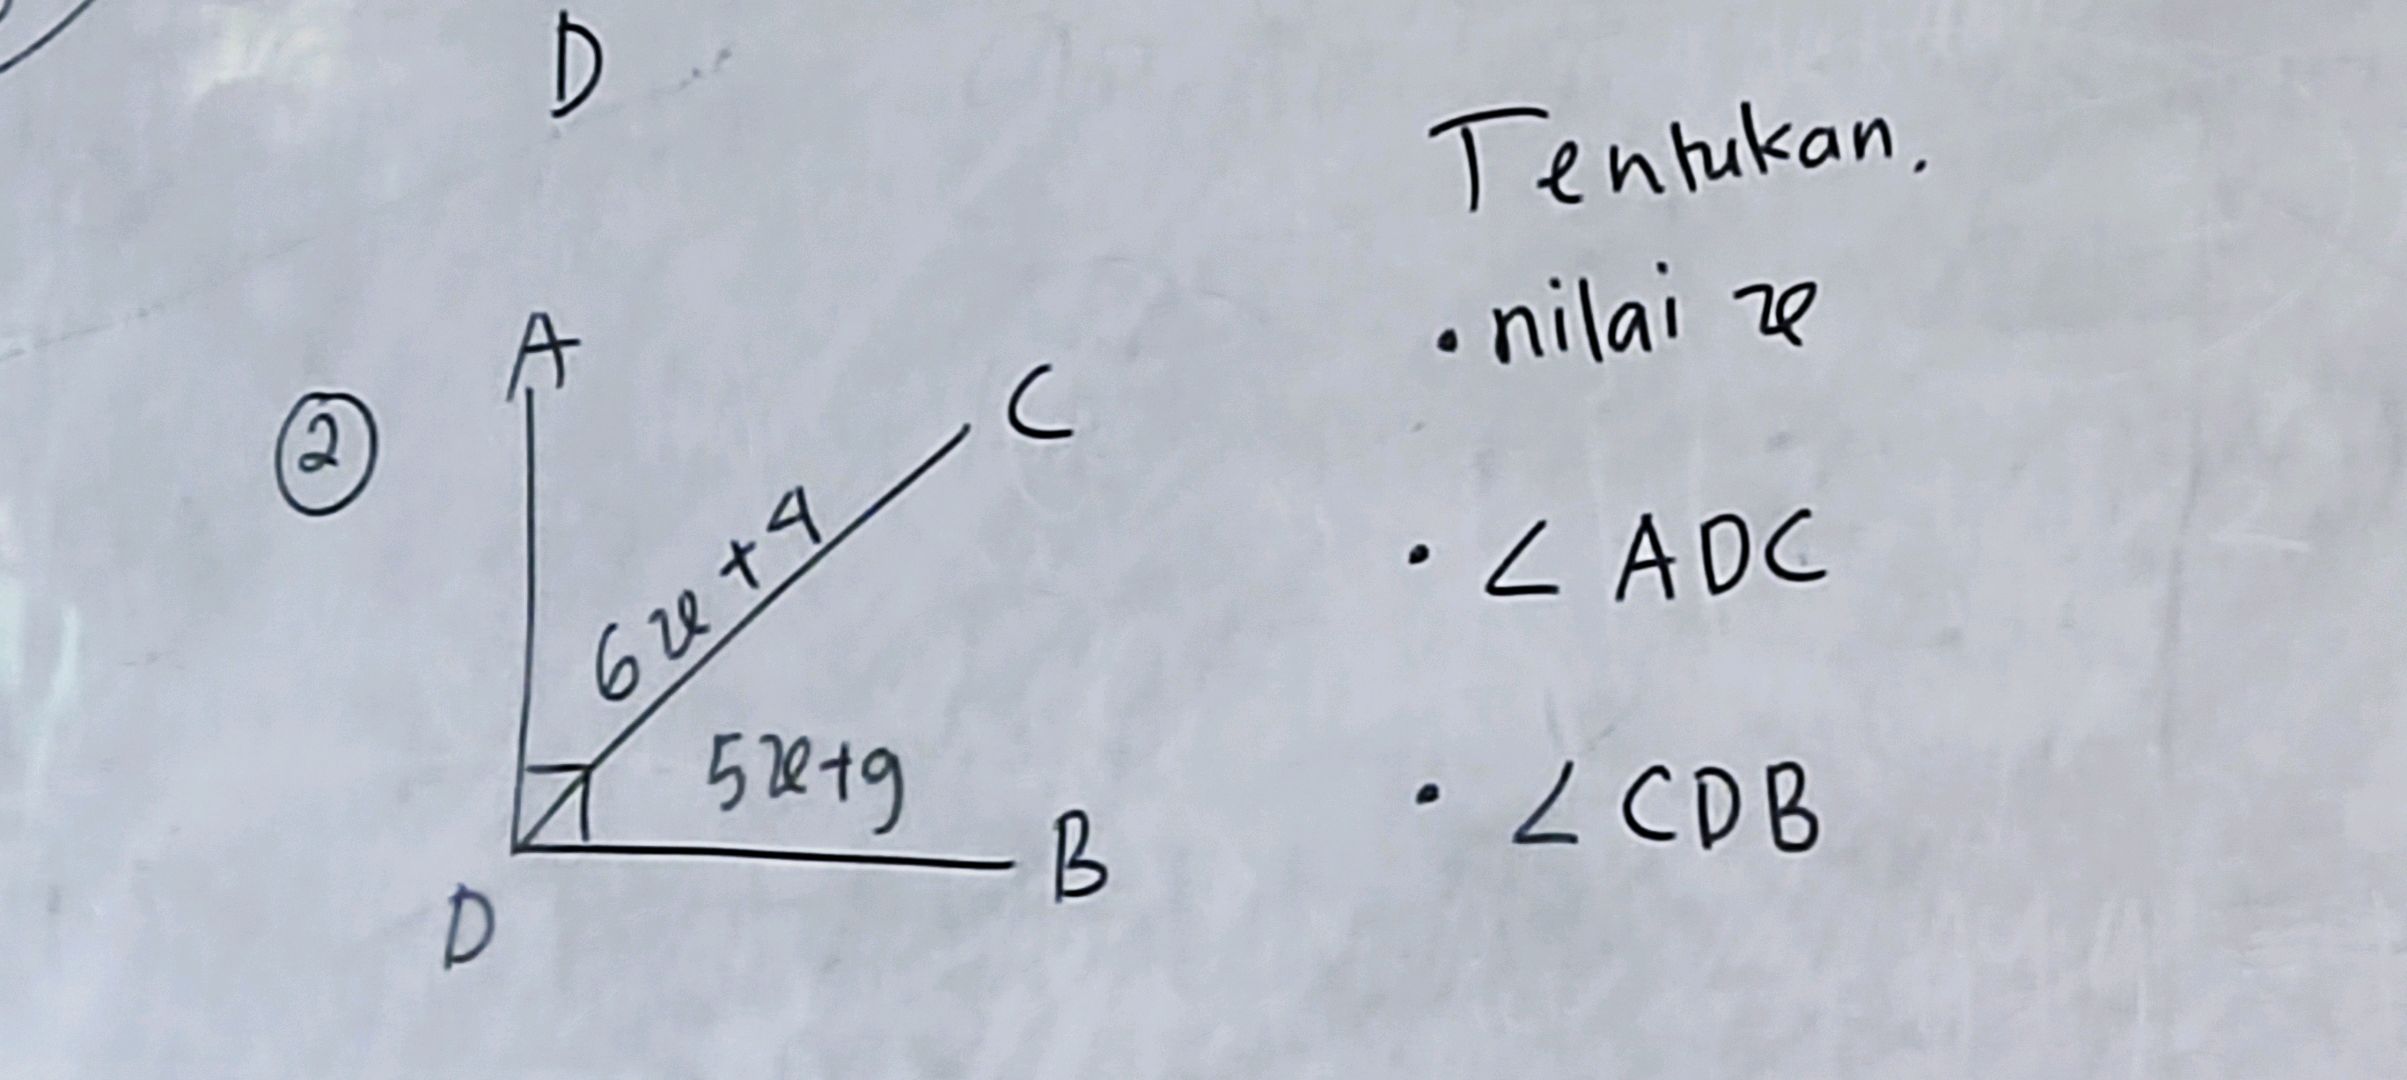 D
Tentukan.
• nilai x
A
C
②
6x + 4
• ∠ ADC
5x+9
• ∠ CDB
B
D